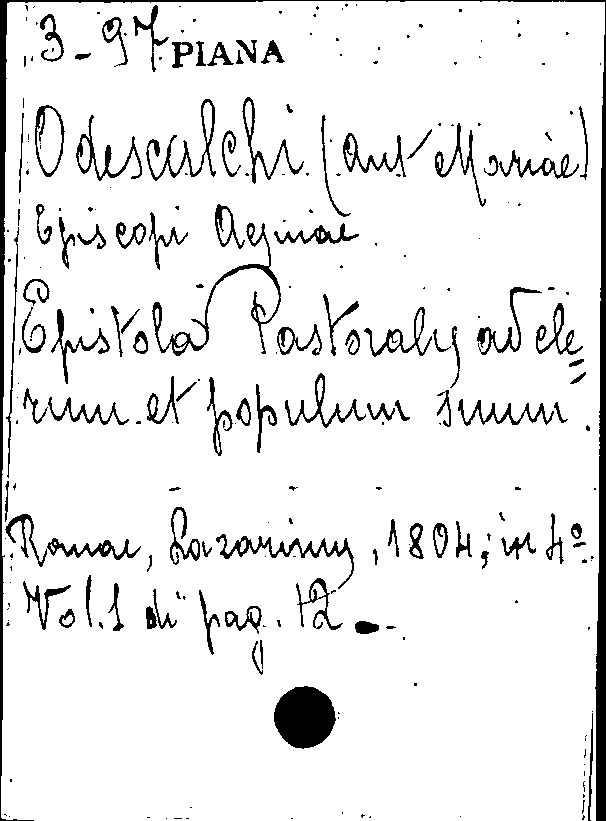 3-97 PIANA
Odescalchi (Ant Mariae)
Episcopi
Epistola Pastoralis ad cle=
rum et populum suum.
Romae, Lazarinus, 1804; in 4º
Vol. 1 di pag. 12 -